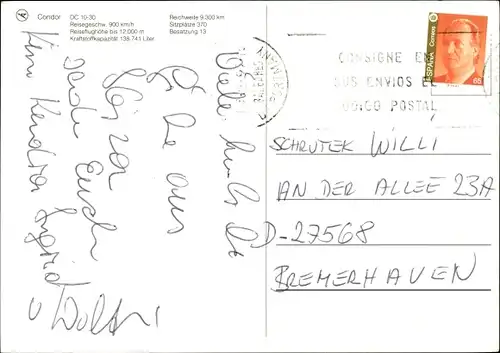 Condor
DC 10-30
Reisegeschw. 900 km/h
Reiseflughöhe bis 12.000 m
Kraftstoffkapazität 138.741 Liter
Reichweite 9.300 km
Sitzplätze 370
Besatzung 13
Viele
Gr
aus
Ibiza
Euch
Kim Kendra Ingrid
u
CONSIGNE EN
SUS ENVIOS EL
CODIGO POSTAL
ESPAÑA
Correos
65
SCHRUTEK WILLI
AN DER ALLEE 23A
D-27568
BREMERHAVEN